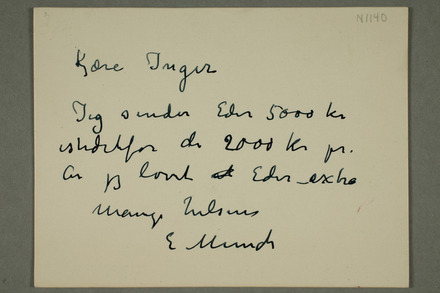 N1140
Kjære Inger
Jeg sender Eder 5000 kr
istedetfor de 2000 kr pr.
år jeg lovet Eder extra
Mange hilsener
E Munch